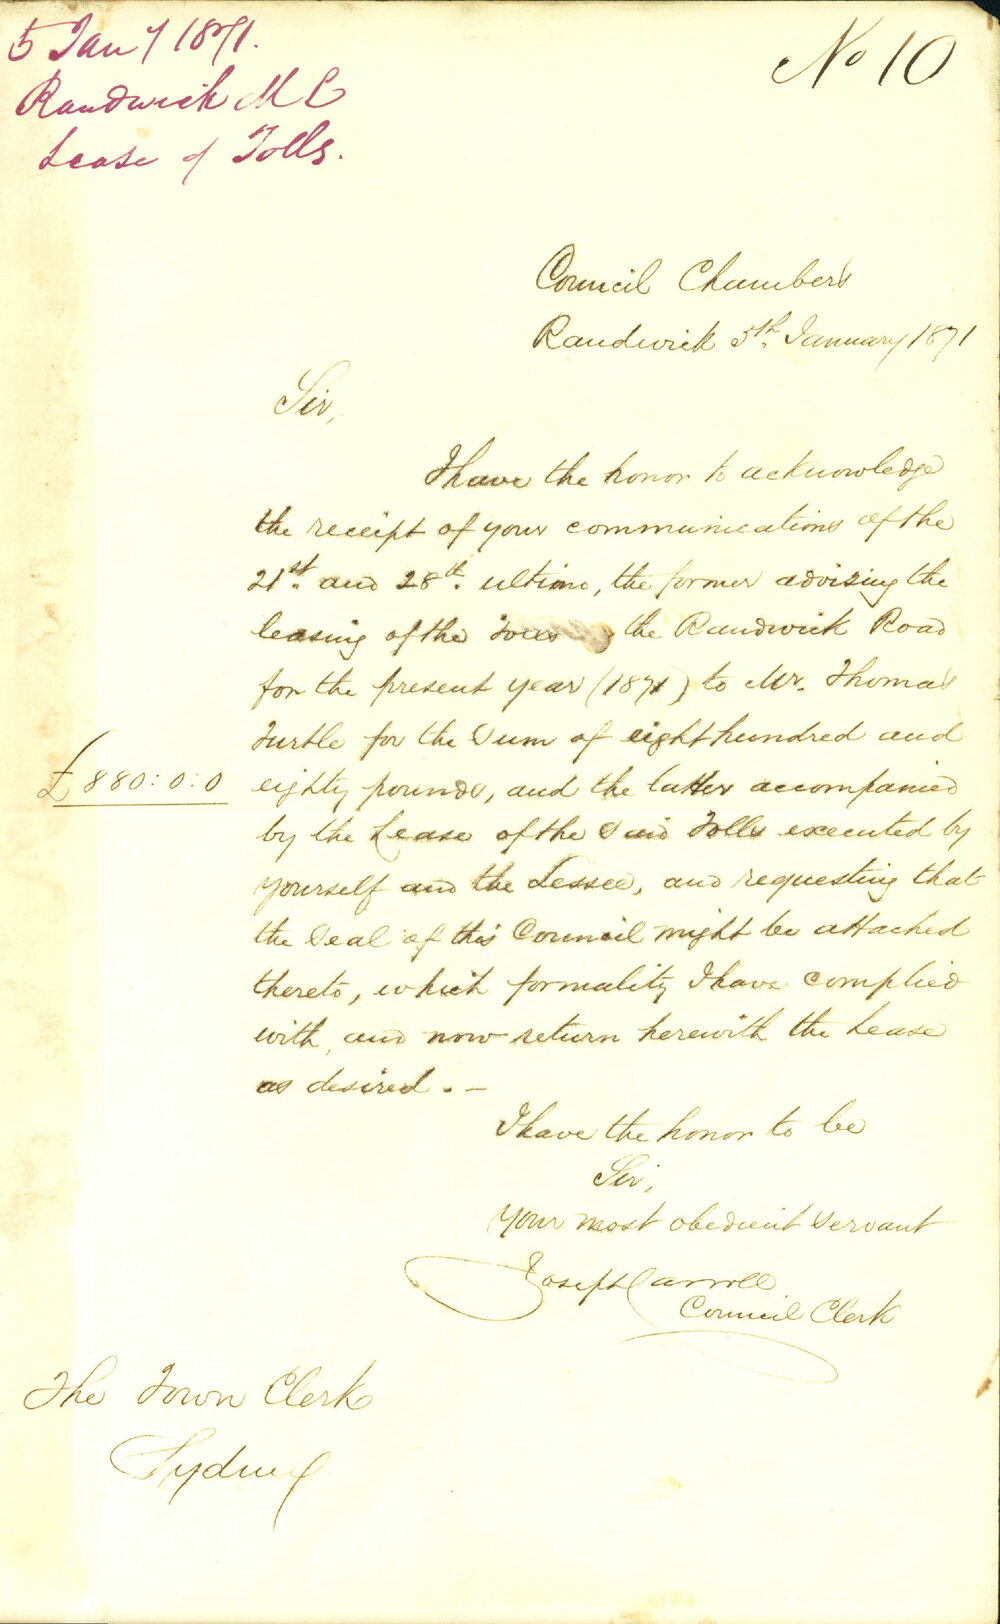 5 Jany 1871.
Randwick M C
Lease of Tolls.
No 10
Council Chambers
Randwick 5th. January 1871
Sir,
I have the honor to acknowledge
the receipt of your communications of the
21st. and 28th. ultimo, the former advising the
leasing of the Tolls the Randwick Road
for the present year (1871) to Mr. Thomas
Turtle for the Sum of eight hundred and
£880:0:0
eighty pounds, and the latter accompanied
by the Lease of the Said Tolls executed by
yourself and the Lessee, and requesting that
the Seal of this Council might be attached
thereto, which formality I have complied
with, and now return herewith the Lease
as desired. -
I have the honor to be
Sir,
Your most obedient Servant
Joseph Carroll
Council Clerk
The Town Clerk
Sydney